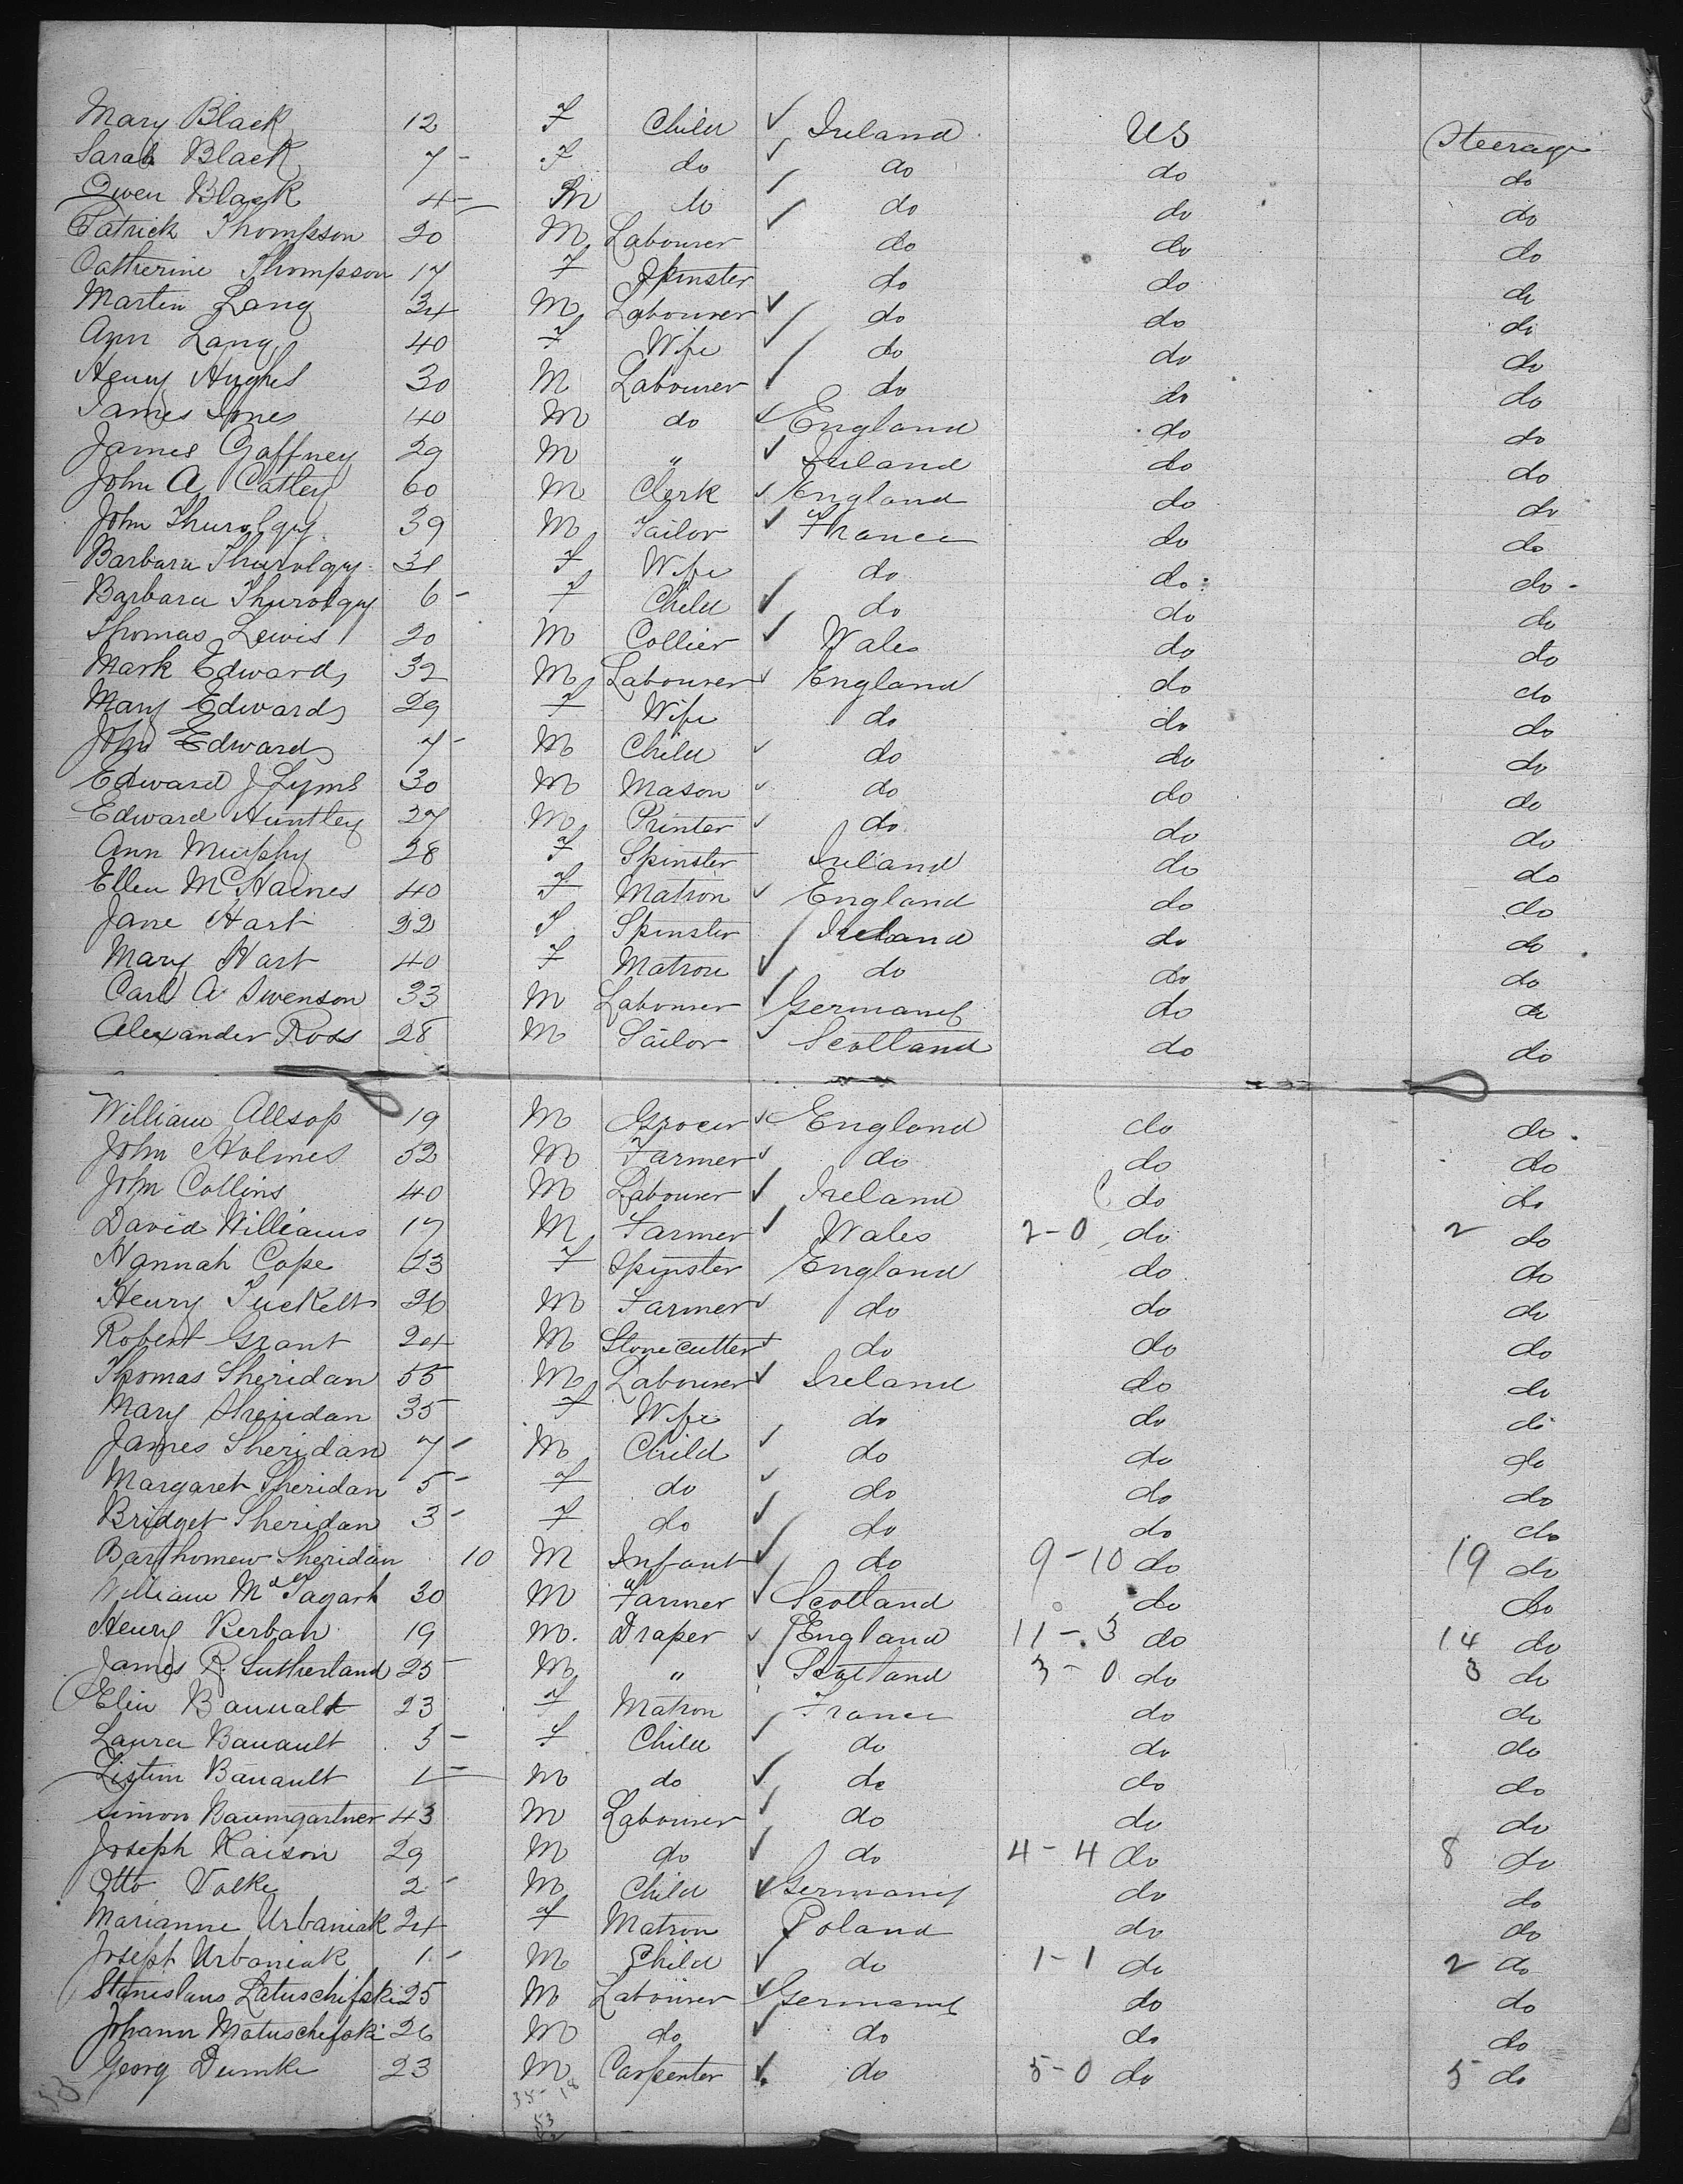 Mary Black 12 F Child ✓ Ireland US Steerage
Sarah Black 7 - F do ✓ do do do
Owen Black 4 - M do ✓ do do do
Patrick Thompson 20 M Labourer ✓ do do do
Catherine Thompson 17 F Spinster do do do
Martin Lang 34 M Labourer ✓ do do do
Ann Lang 40 F Wife ✓ do do do
Henry Hughes 30 M Labourer ✓ do do do
James Jones 40 M do ✓ England do do
James Gaffney 29 M " ✓ Ireland do do
John A Catley 60 M Clerk ✓ England do do
John 39 M Tailor ✓ France do do
Barbara 31 F Wife do do do
Barbara 6 - F Child ✓ do do do
Thomas Lewis 20 M Collier ✓ Wales do do
Mark Edwards 32 M Labourer ✓ England do do
Mary Edwards 29 F Wife do do do
John Edwards 7 - M Child ✓ do do do
Edward J Lyms 30 M Mason ✓ do do do
Edward Huntley 27 M Printer ✓ do do do
Ann Murphy 28 F Spinster Ireland do do
Ellen McHaines 40 F Matron ✓ England do do
Jane Hart 22 F Spinster ✓ Ireland do do
Mary Hart 40 F Matron ✓ do do do
Carl A Swenson 33 M Labourer ✓ Germany do do
Alexander Ross 28 M Sailor ✓ Scotland do do
William Allsop 19 M Grocer ✓ England do do
John Holmes 52 M Farmer ✓ do do do
John Collins 40 M Labourer ✓ Ireland do do
David Williams 17 M Farmer ✓ Wales 2-0 do 2 do
Hannah Cope 23 F Spinster England do do
Henry Tuckett 26 M Farmer ✓ do do do
Robert Grant 24 M Stonecutter ✓ do do do
Thomas Sheridan 55 M Labourer ✓ Ireland do do
Mary Sheridan 35 F Wife do do do
James Sheridan 7 - M Child ✓ do do do
Margaret Sheridan 5 - F do ✓ do do do
Bridget Sheridan 3 - F do ✓ do do do
Barthomew Sheridan 10 M Infant ✓ do 9-10 do 19 do
William 30 M Farmer ✓ Scotland do do
Henry Kerbah 19 M. Draper ✓ England 11-3 do 14 do
James R. Sutherland 25 M " ✓ Scotland 3-0 do 3 do
Elin 23 F Matron France do do
Laura Bauault 3 - F Child ✓ do do do
Bauault 1 - M do ✓ do do do
Simon Baumgartner 43 M Labourer ✓ do do do
Joseph Kaison 29 M do ✓ do 4-4 do 8 do
Otto Volke 2 - M Child ✓ Germany do do
Marianne Urbaniak 24 F Matron Poland do do
Joseph Urbaniak 1 - M Child ✓ do 1-1 do 2 do
Stanislaus Latuschifski 25 M Labourer ✓ Germany do do
Johann Matuschifski 26 M do ✓ do do do
Georg Dumke 23 M Carpenter ✓ do 5-0 do 5 do
53 35-18
53